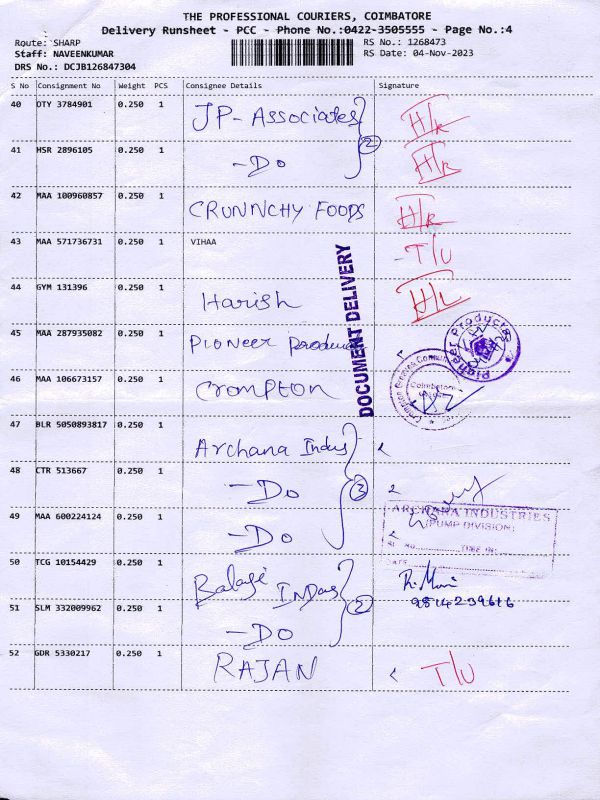 THE PROFESSIONAL COURIERS, COIMBATORE
Delivery Runsheet - PCC - Phone No.:0422-3505555 - Page No.:4
Route: SHARP
RS No.: 1268473
Staff: NAVEENKUMAR
RS Date: 04-Nov-2023
DRS No.: DCJB126847304
S No Consignment No Weight PCS Consignee Details Signature
40 OTY 3784901 0.250 1 JP-Associates H/R
2
41 HSR 2896105 0.250 1 -DO H/R
42 MAA 100960857 0.250 1 CRUNNCHY FOODS H/R
43 MAA 571736731 0.250 1 VIHAA -T/U
DOCUMENT DELIVERY
44 GYM 131396 0.250 1 Harish
45 MAA 287935082 0.250 1 Pioneer Pioneer Products
46 MAA 106673157 0.250 1 Crompton
Coimbatore
47 BLR 5050893817 0.250 1 Archana Indus
48 CTR 513667 0.250 1 -DO
3
ARCHANA INDUSTRIES
(PUMP DIVISION)
49 MAA 600224124 0.250 1 -DO
TIME IN:
50 TCG 10154429 0.250 1 Balaji INDus
2
9814239616
51 SLM 332009962 0.250 1 -DO
52 GDR 5330217 0.250 1 RAJAN T/U